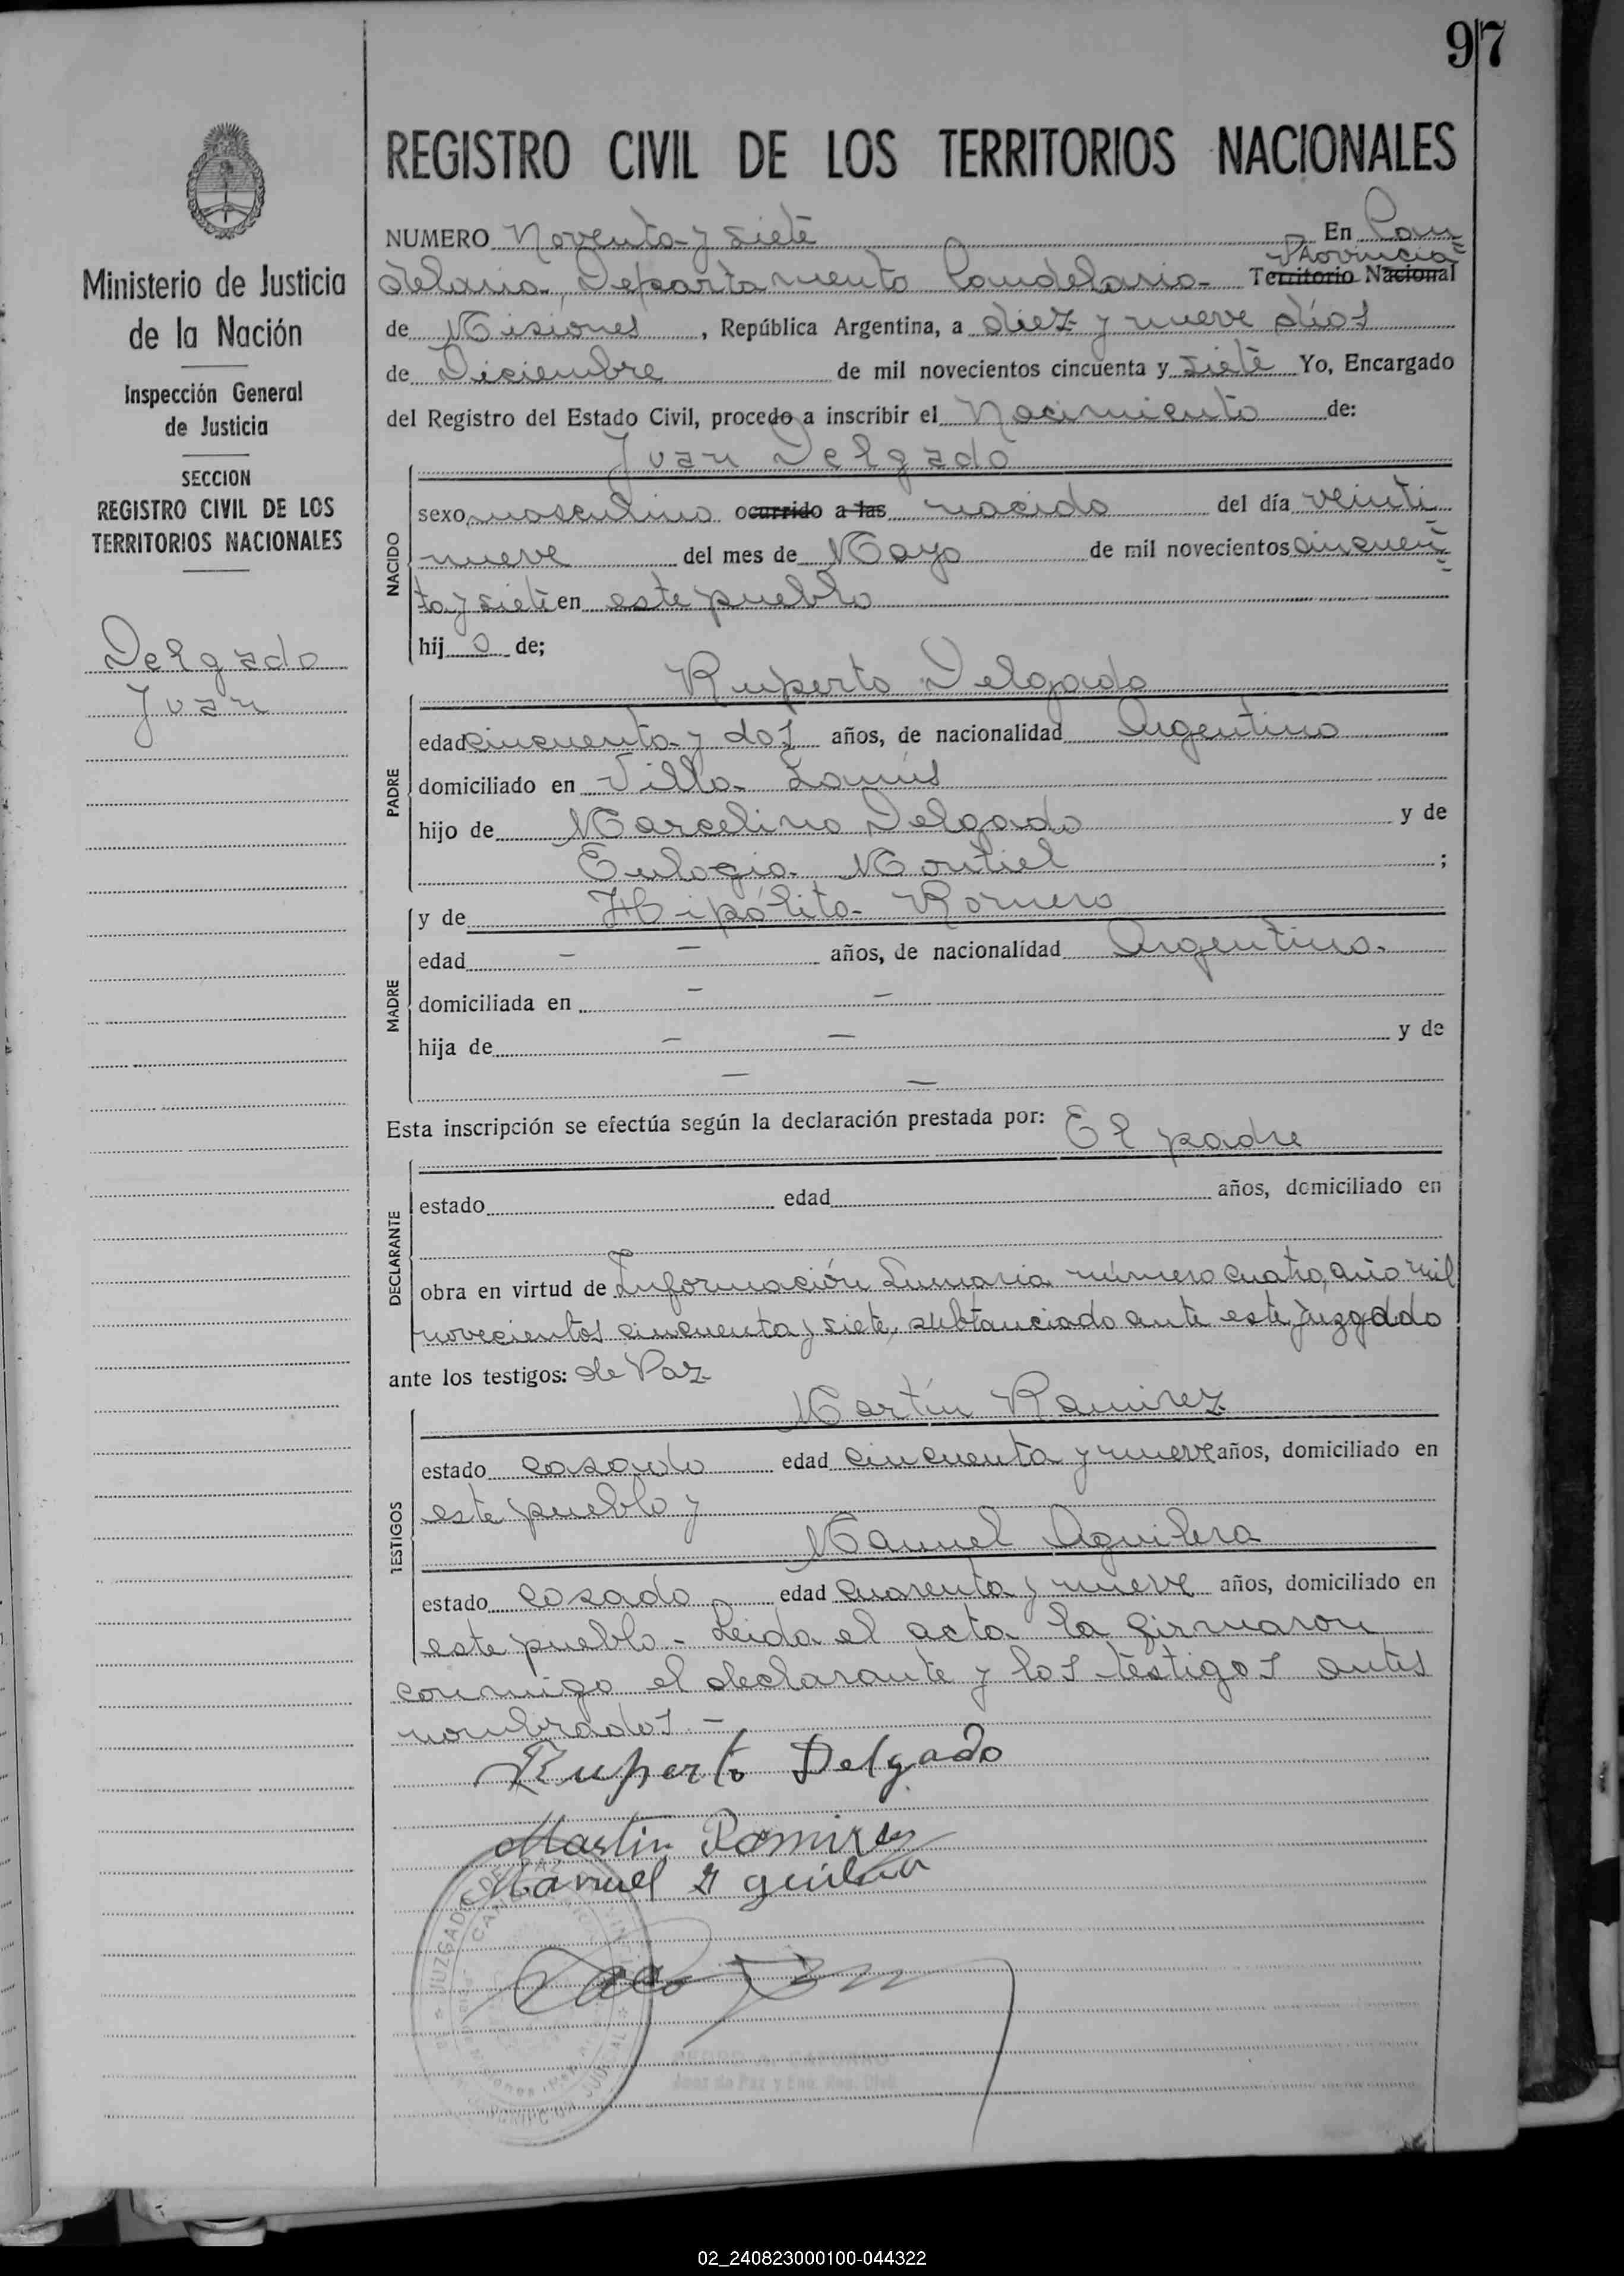 97
REGISTRO CIVIL DE LOS TERRITORIOS NACIONALES
Ministerio de Justicia
de la Nación
Inspección General
de Justicia
SECCION
REGISTRO CIVIL DE LOS
TERRITORIOS NACIONALES
Delgado
Juan
NUMERO Noventa y siete En Can
Provincia
delaria, Departamento Candelaria- Territorio Nacional
de Misiones, República Argentina, a diez y nueve días
de Diciembre de mil novecientos cincuenta y siete Yo, Encargado
del Registro del Estado Civil, procedo a inscribir el Nacimiento de:
Juan Delgado
NACIDO
sexo masculino ocurrido a las nacido del día veinti
nueve del mes de Mayo de mil novecientos cincuen
ta y siete en este pueblo
hij o de;
Ruperto Delgado
PADRE
edad cincuenta y dos años, de nacionalidad Argentino
domiciliado en Villa Lanús
hijo de Marcelino Delgado y de
Eulogia Montiel ;
MADRE
y de Hipólita Romero
edad - - años, de nacionalidad Argentina.
domiciliada en - -
hija de - - y de
- -
Esta inscripción se efectúa según la declaración prestada por: El padre
DECLARANTE
estado edad años, domiciliado en
obra en virtud de Información Sumaria número cuatro, año mil
novecientos cincuenta y siete, substanciado ante este juzgado
ante los testigos: de Paz
TESTIGOS
Martín Ramirez
estado casado edad cincuenta y nueve años, domiciliado en
este pueblo y
Manuel Aguilera
estado casado edad cuarenta y nueve años, domiciliado en
este pueblo - Leida el acta la firmaron
conmigo el declarante y los testigos antes
nombrados. -
Ruperto Delgado
Martin Ramirez
Manuel Aguilera
JUZGADO DE PAZ
Juez de Paz y Enc. Reg. Civil
02_240823000100-044322